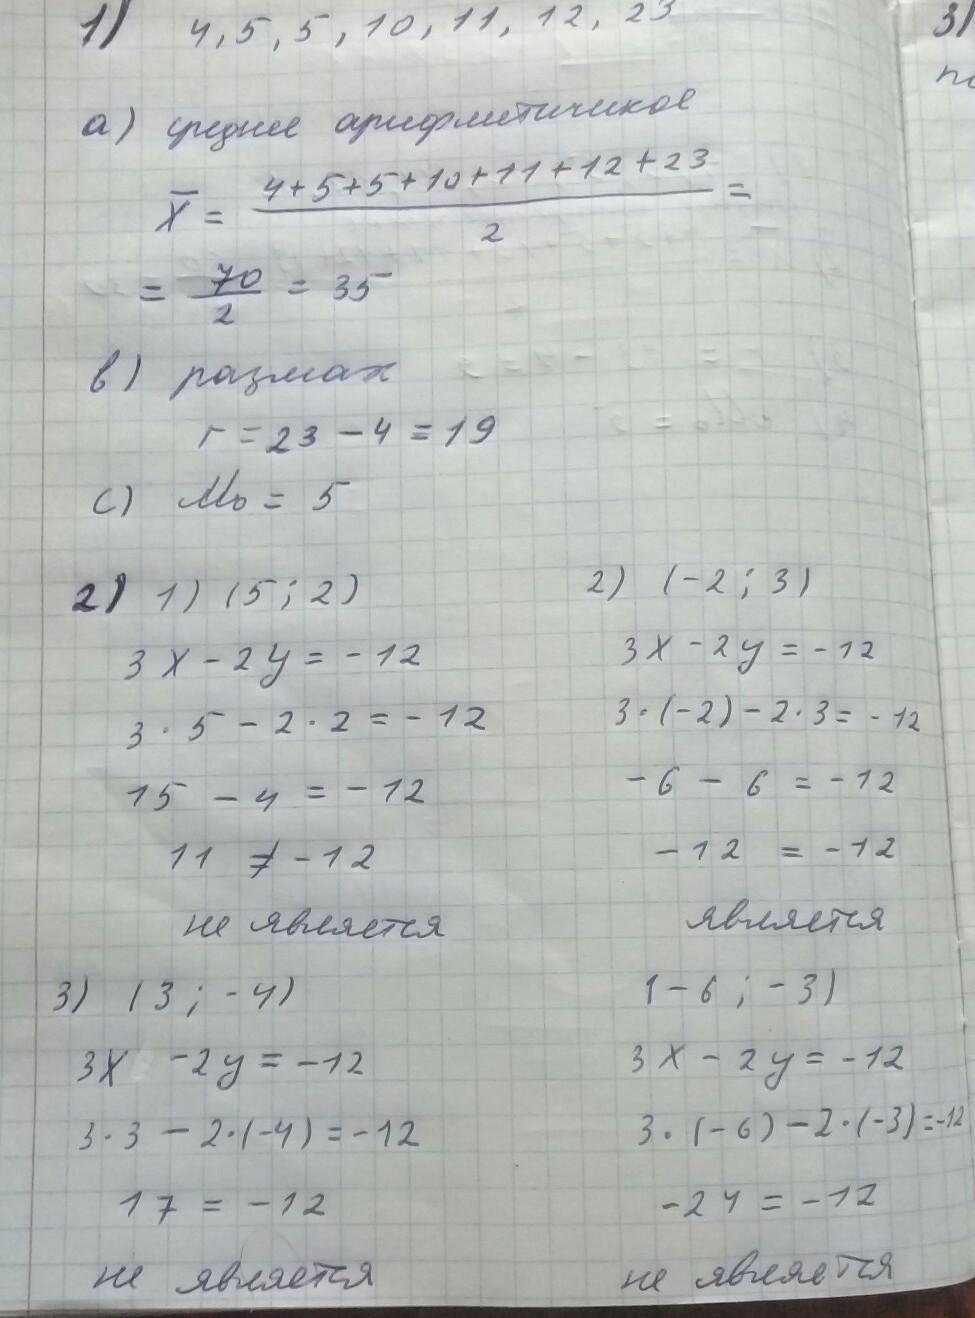 1) 4, 5, 5, 10, 11, 12, 23
3)
а) среднее арифметичикое
X̅ = (4+5+5+10+11+12+23)/2 =
= 70/2 = 35
в) размах
r = 23 - 4 = 19
с) Mo = 5
2) 1) (5; 2)
3x - 2y = -12
3 · 5 - 2 · 2 = -12
15 - 4 = -12
11 ≠ -12
не является
2) (-2; 3)
3x - 2y = -12
3 · (-2) - 2 · 3 = -12
-6 - 6 = -12
-12 = -12
является
3) (3; -4)
3x - 2y = -12
3 · 3 - 2 · (-4) = -12
17 = -12
не является
(-6; -3)
3x - 2y = -12
3 · (-6) - 2 · (-3) = -12
-24 = -12
не является